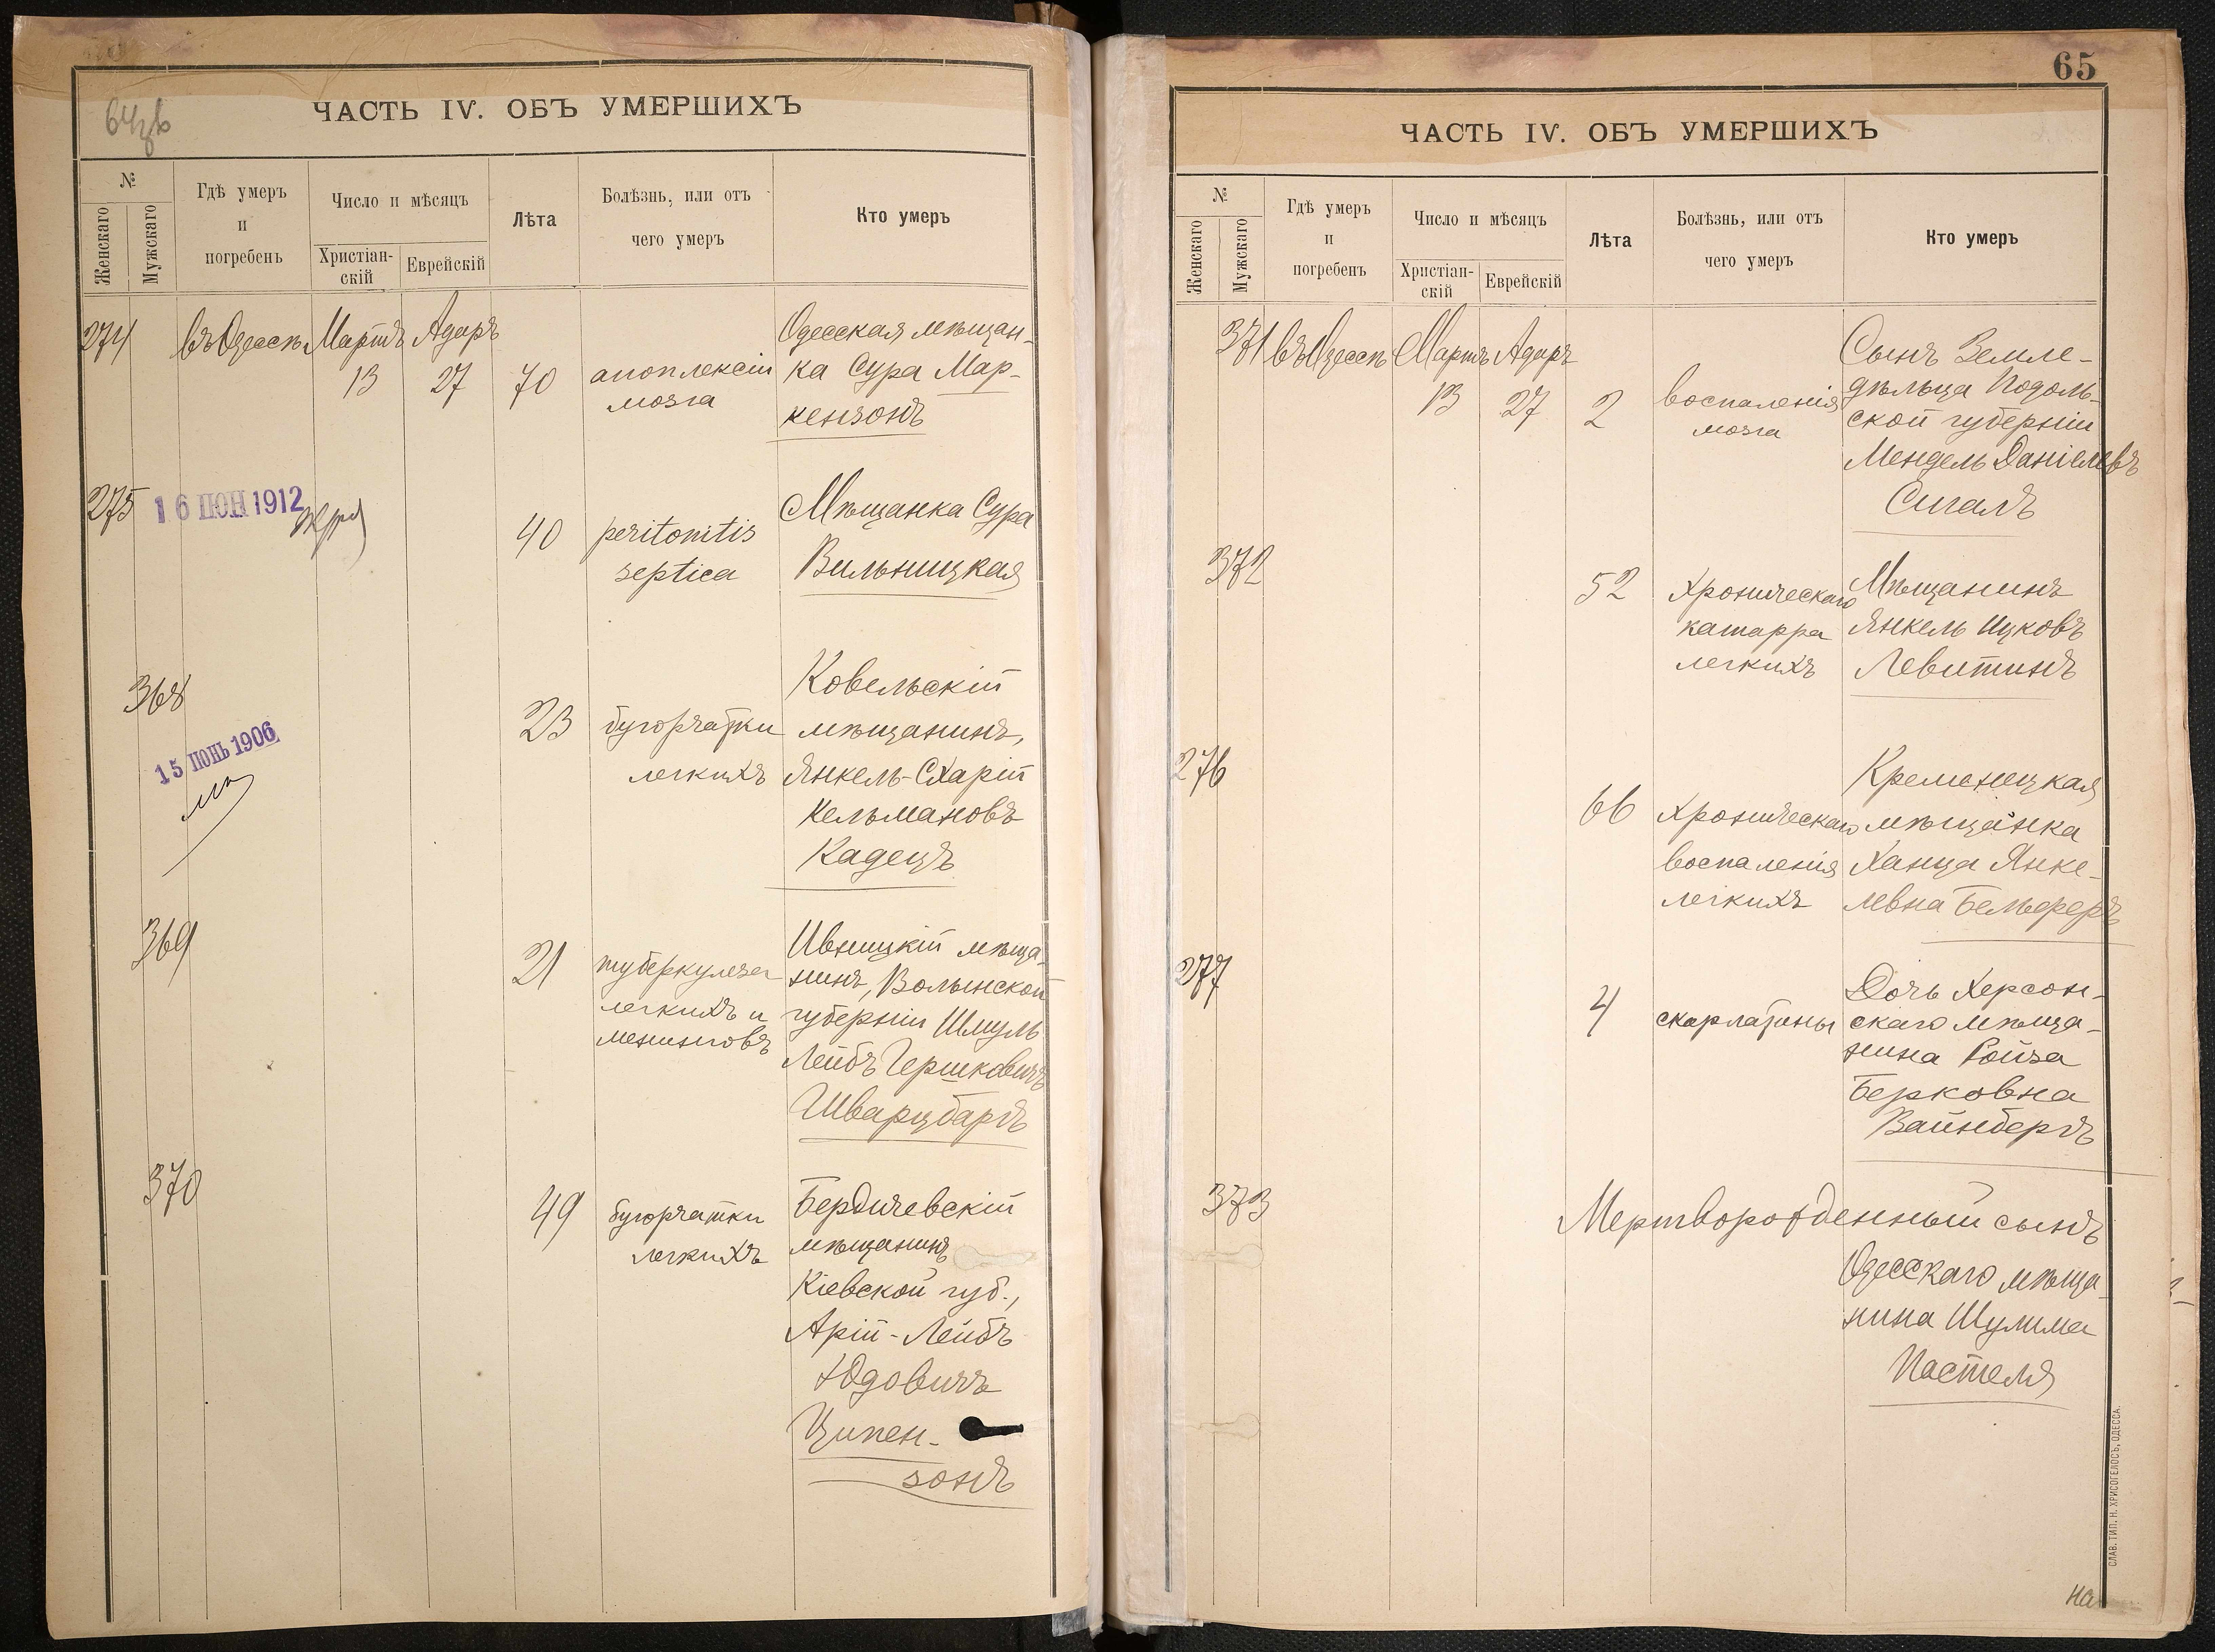 64об
ЧАСТЬ IV. ОБЪ УМЕРШИХЪ
№
Женскаго
Мужскаго
Гдѣ умеръ
и
погребенъ
Число и мѣсяцъ
Христіан-
скій
Еврейскій
Лѣта
Болѣзнь, или отъ
чего умеръ
Кто умеръ
274 въ Одессѣ Мартъ Адаръ
13 27 70
апоплексіи
мозга
Одесская мѣщан-
ка Сура Мар-
кензонъ
275
16 ІЮН 1912
40
peritonitis
septica
Мѣщанка Сура
Вильницкая
368
15 ІЮНЬ 1906
23
бугорчатки
легкихъ
Ковельскій
мѣщанинъ,
Янкель-Схарій
Кельмановъ
Кадецъ
369
21
туберкулеза
легкихъ и
менинговъ
Ивницкій мѣща-
нинъ, Волынской
губерніи Шмуль
Лейбъ Гершковичъ
Шварцбаргъ
370
49
бугорчатки
легкихъ
Бердичевскій
мѣщанинъ
Кіевской губ.,
Арій-Лейбъ
Юдовичъ
Ципен-
зонъ
65
ЧАСТЬ IV. ОБЪ УМЕРШИХЪ
№
Женскаго
Мужскаго
Гдѣ умеръ
и
погребенъ
Число и мѣсяцъ
Христіан-
скій
Еврейскій
Лѣта
Болѣзнь, или отъ
чего умеръ
Кто умеръ
371 въ Одессѣ Мартъ Адаръ
13 27 2
воспаленія
мозга
Сынъ Земле-
дѣльца Подоль-
ской губерніи
Мендель Даніелевъ
Сигалъ
372
52
Хроническаго
катарра
легкихъ
Мѣщанинъ
Янкель Ицковъ
Левитинъ
276
66
Хроническаго
воспаленія
легкихъ
Кременецкая
мѣщанка
Ханца Янке-
левна Бельферъ
277
4
скарлатины
Дочь Херсон-
скаго мѣща-
нина Ройза
Берковна
Вайнбергъ
373
Мертворожденный сынъ
Одесскаго мѣща-
нина Шулима
Пастеля
СЛАВ. ТИП. Н. ХРИСОГЕЛОСЪ, ОДЕССА.
На